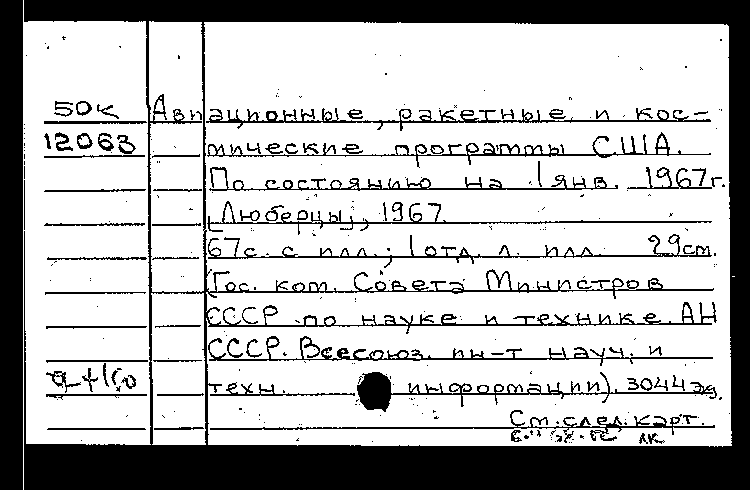 50к Авиационные, ракетные и кос-
12063 мические программы США.
По состоянию на 1 янв. 1967г.
[Люберцы], 1967.
67с. с илл.; 1 отд. л. илл. 29см.
(Гос. ком. Совета Министров
СССР по науке и технике. АН
СССР. Всесоюз. ин-т науч. и
техн. информации). 3044экз.
См. след. карт.